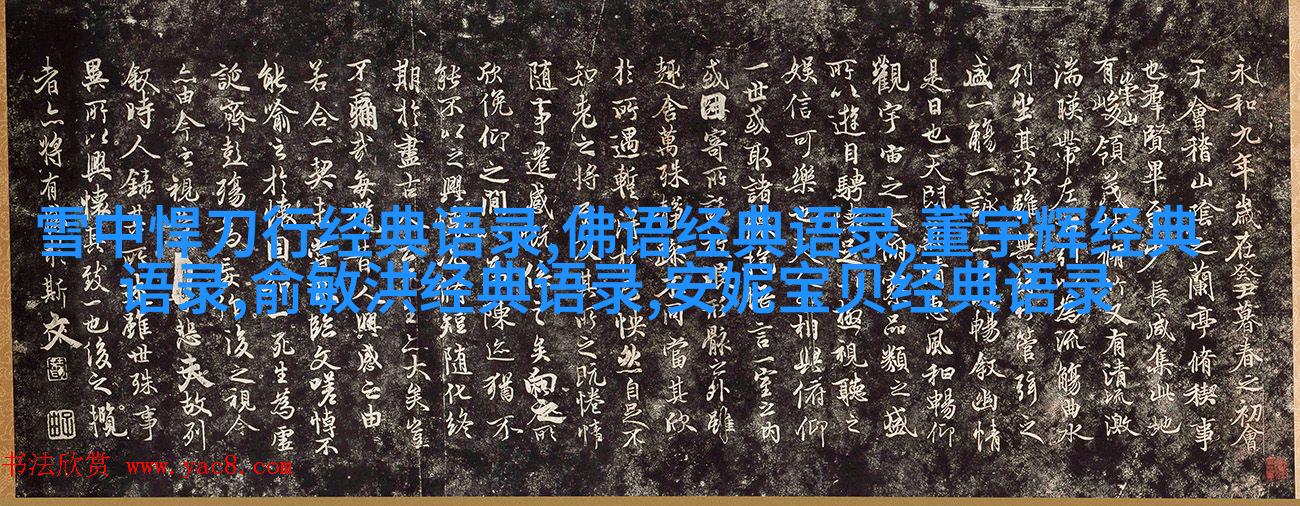 雪中悍刀行经典语录,佛语经典语录,董宇辉经典
语录,俞敏洪经典语录,安妮宝贝经典语录
永和九年歲在癸丑暮春之初會
于會稽山陰之蘭亭脩稧事
也羣賢畢至少長咸集此地
有崇山峻領茂林脩竹又有清流激
湍暎帶左右引以為流觴曲水
列坐其次雖無管弦之
盛一觴一詠亦暢敘幽情
是日也天朗清惠風和暢仰
觀宇宙之大俯察品類之盛
所以遊目騁足極視聽之
娛信可樂也相與俯仰
一世或取諸懷抱悟言一室之內
或因寄所形骸之外雖
趣舍萬殊靜躁不同當其欣
於所遇暫怏然自足不
知老之將至及其所之既惓情
隨事遷感慨係之矣向之所
欣俛仰之間陳迹猶不
能不以之興懷短隨化終
期於盡古大矣豈
不痛哉每攬昔人興感之由
若合一契未嘗臨文嗟悼不
能喻之於懷固一死生為虛
誕齊彭殤為妄作後之視今
亦由今之視悲夫故列
敘時人錄其所雖世殊事
異所以興懷其致一也後之攬
者亦將有斯文
书法欣赏 www.yac8.com